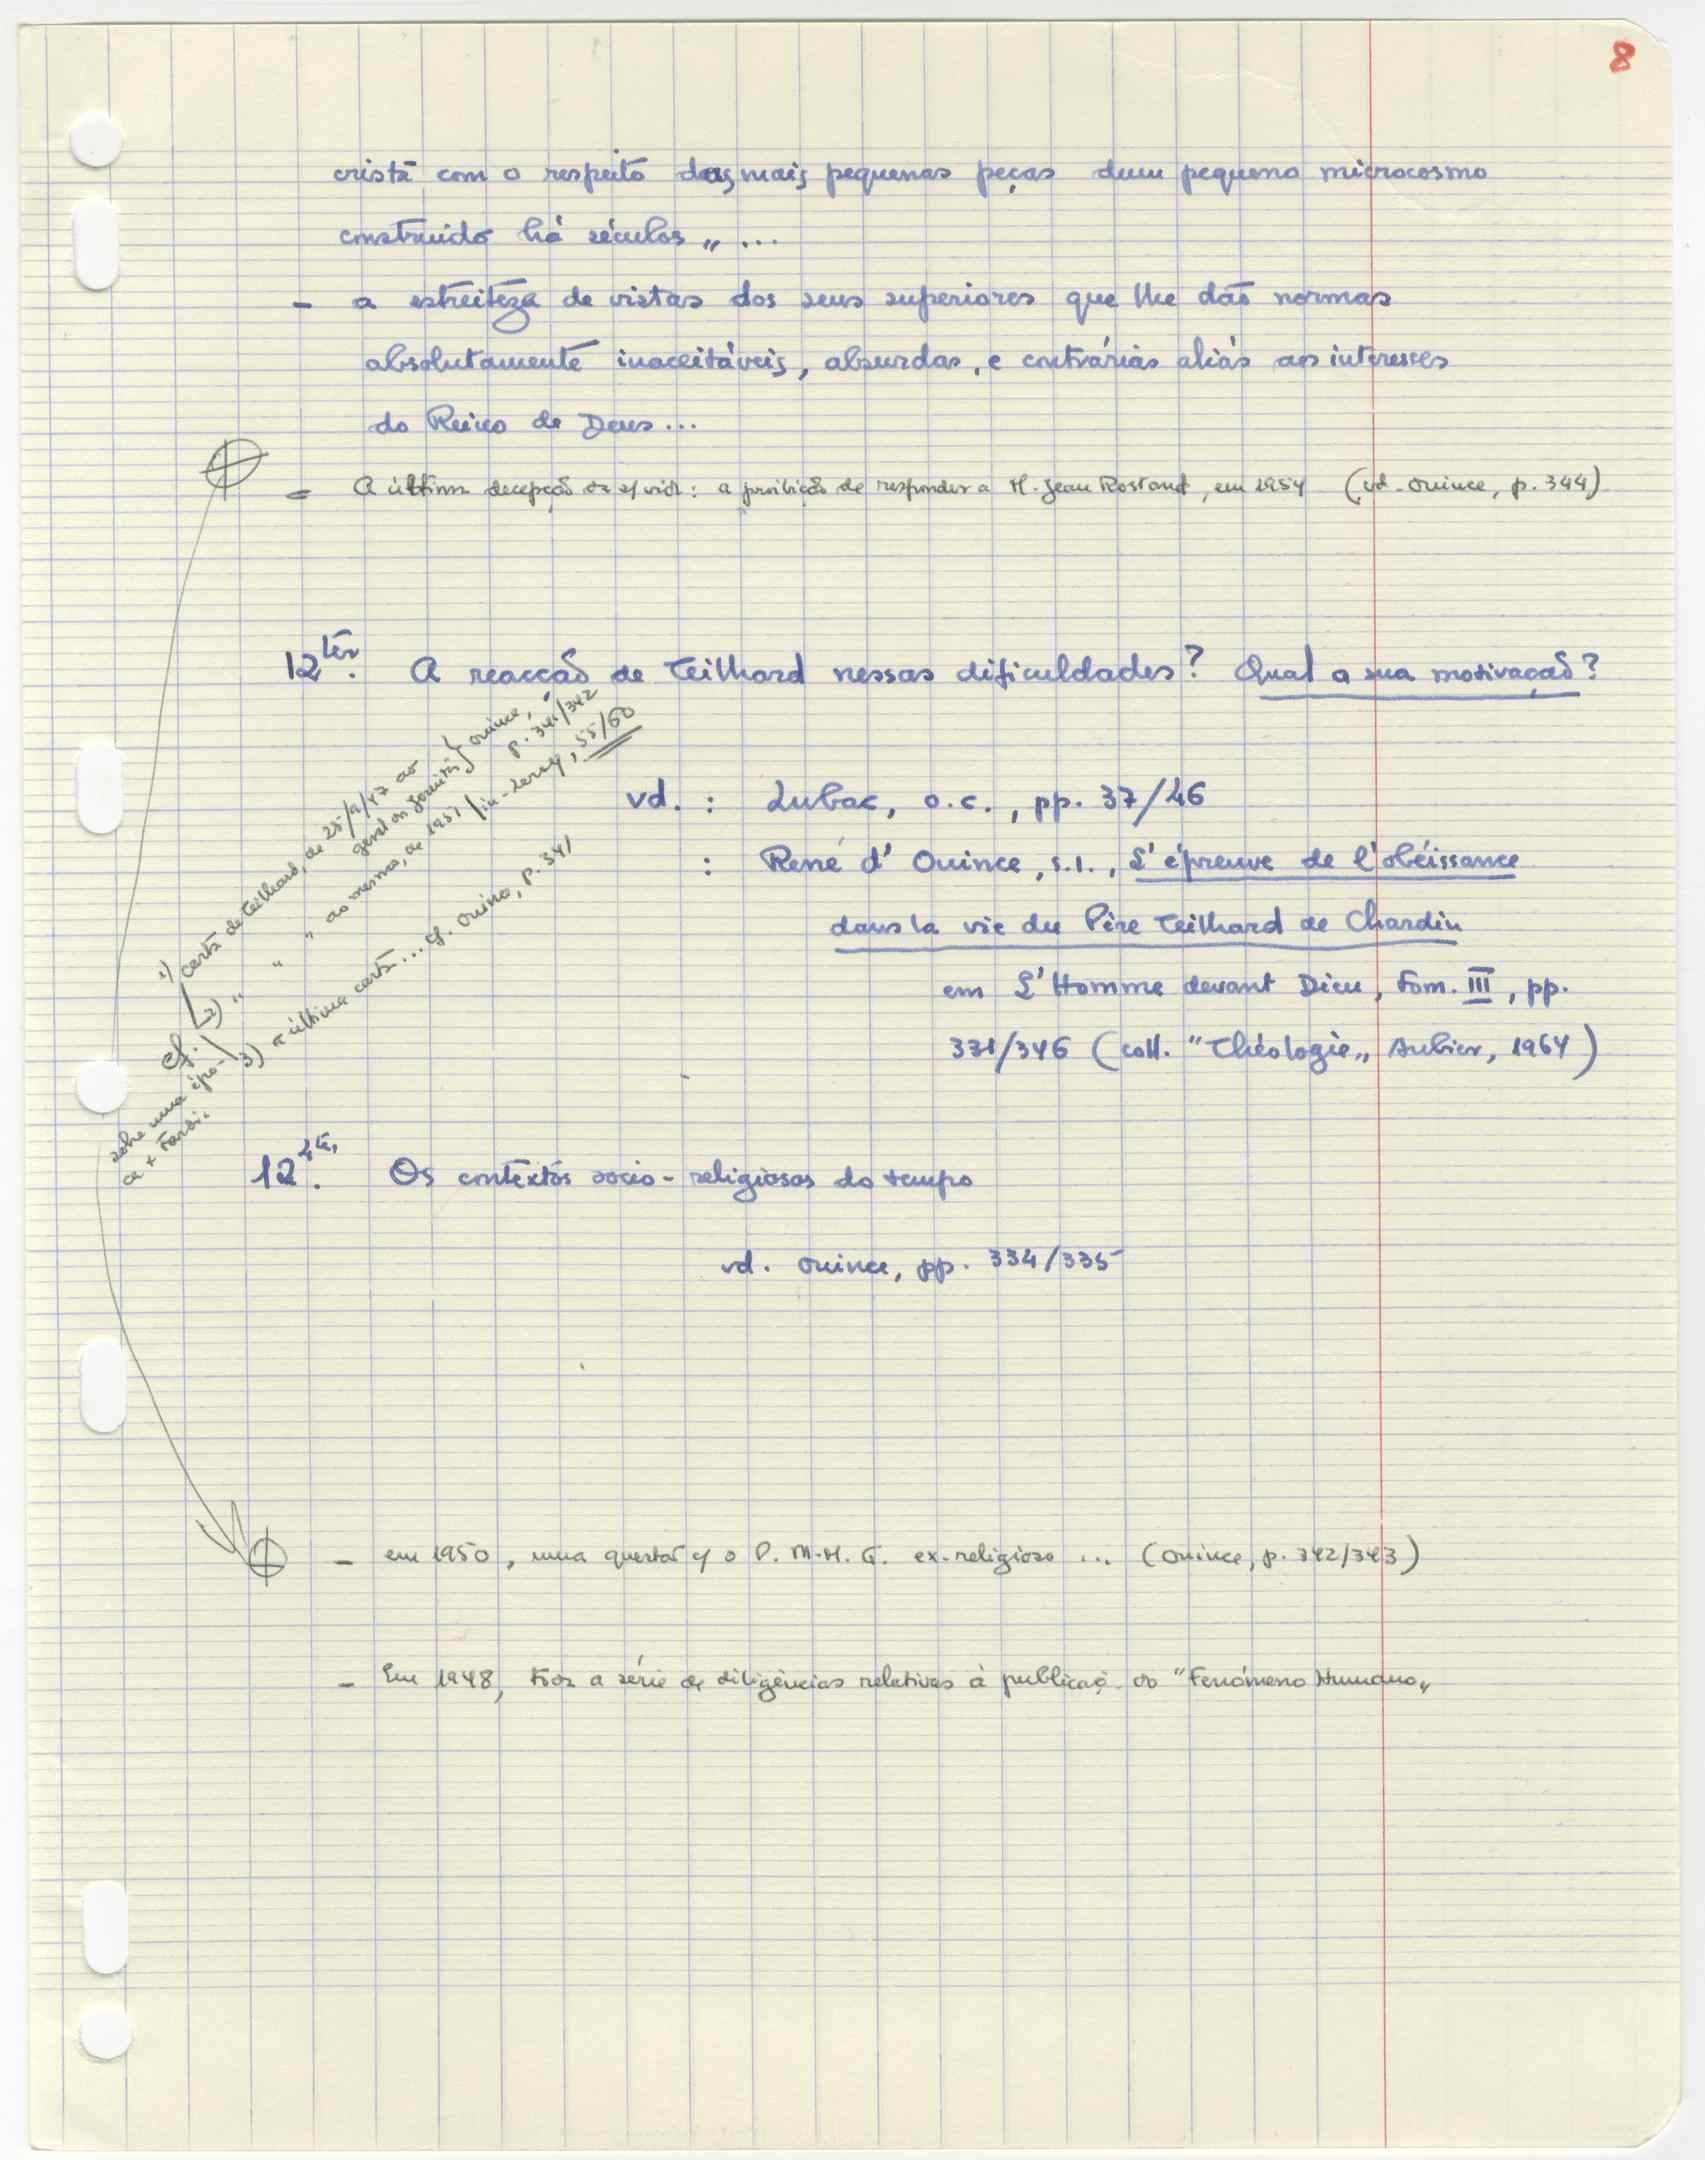 8
cristã com o respeito das mais pequenas peças dum pequeno microcosmo
construido há séculos „ ...
- a estreiteza de vistas dos seus superiores que lhe dão normas
absolutamente inaceitáveis, absurdas, e contrárias aliás aos interesses
do Reino de Deus...
- A última decepção da s/ vida: a proibição de responder a M. Jean Rostand, em 1954 (vd. Ouince, p. 344)
12ter. A reacção de Teilhard nessas dificuldades? Qual a sua motivação?
vd. : Lubac, o.c., pp. 37/46
: René d' Ouince, s.i., L'épreuve de l'obéissance
dans la vie du Père Teilhard de Chardin
em L'Homme devant Dieu, Tom. III, pp.
331/346 (coll. "Théologie„ Aubier, 1964)
cf. 1) carta de Teilhard, de 25/9/47 ao
geral dos Jesuitas } Ouince,
p. 341/342
2) " " " ao mesmo, de 1951 (in-Leroy, 55/60
3) a última carta... cf. Ouince, p. 341
sobre uma
a + tardi.
12 Os contextos socio-religiosos do tempo
vd. Ouince, pp. 334/335
- em 1950, uma questão c/ o P. M-M. G. ex-religioso ... (Ouince, p. 342/343)
- Em 1948, toda a série de diligências relativas à publicaç. do "Fenómeno Humano„